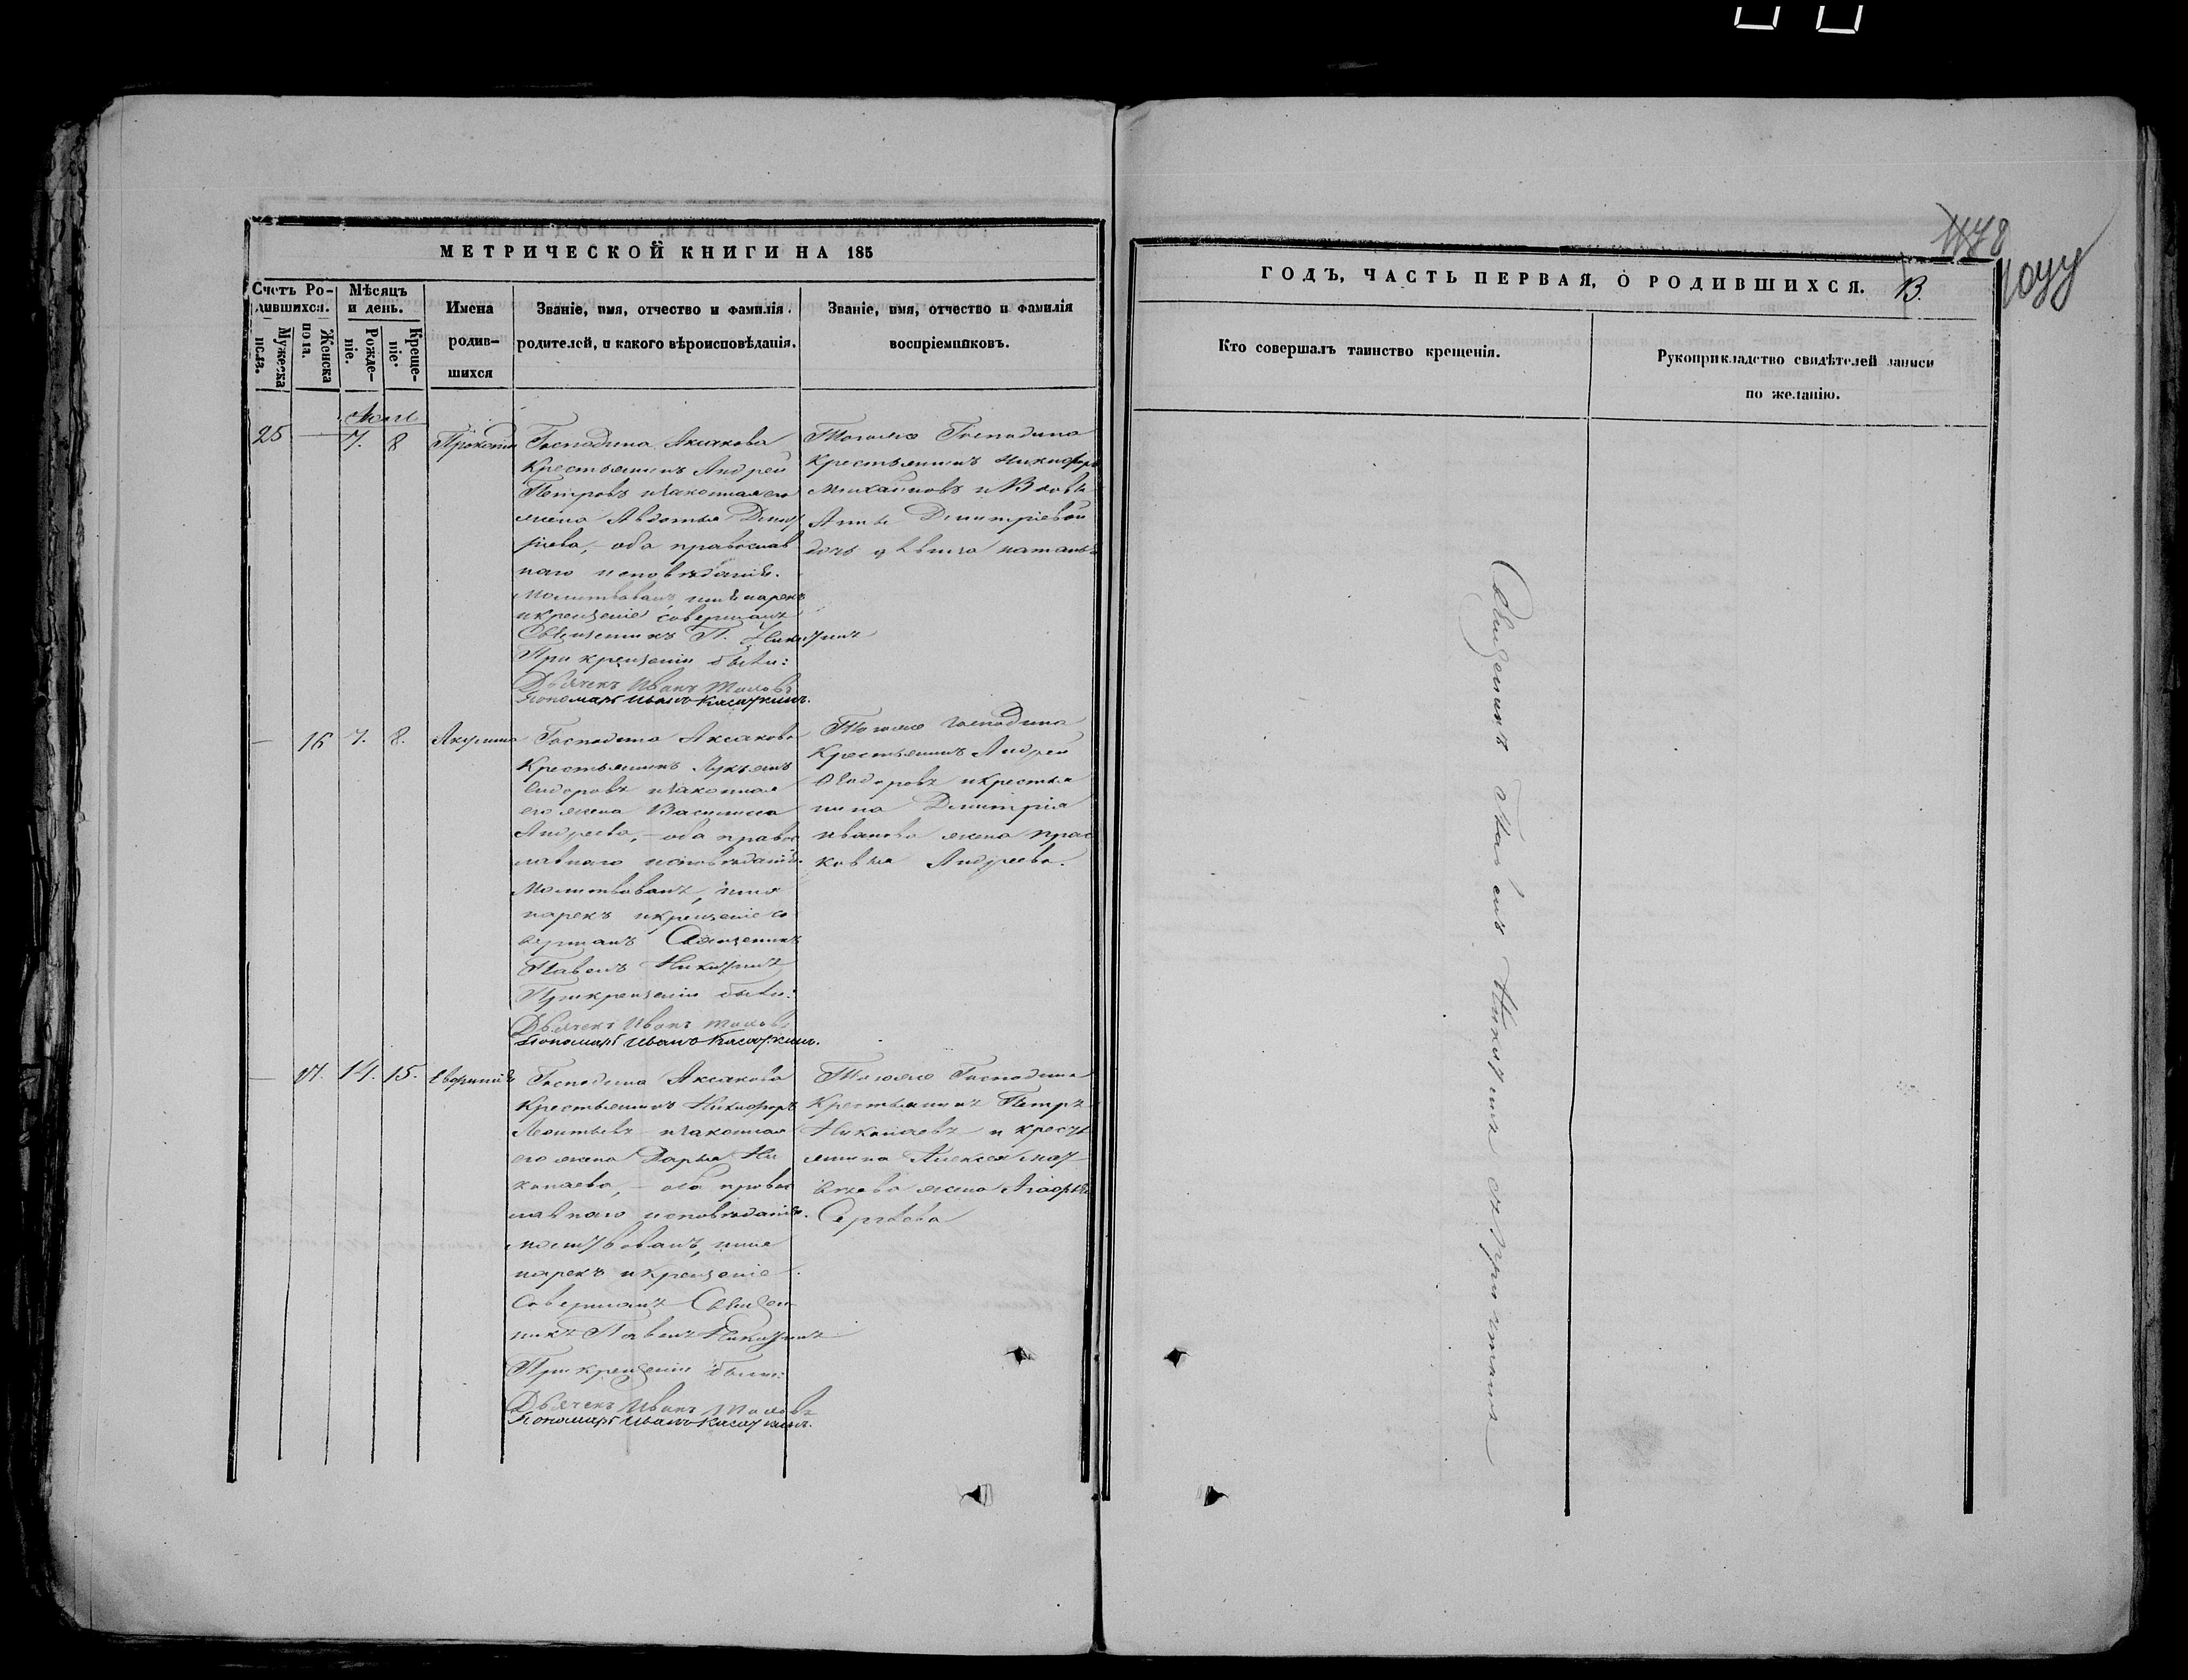 МЕТРИЧЕСКОЙ КНИГИ НА 185
Счетъ Родившихся.
Мужеска пола.
Женска пола.
Мѣсяцъ и день.
Рожденіе.
Крещеніе.
Имена родившихся
Званіе, имя, отчество и фамилія родителей, и какого вѣроисповѣданія.
Званіе, имя, отчество и фамилія воспріемниковъ.
25 — 7. 8 Прокопій
Господина Аксакова
Крестьянинъ Андрей
Петровъ и законная его
жена Авдотья Дмит
ріева, – оба православ
наго исповѣданія.
Молитвовалъ имя нарекъ
и крещеніе совершалъ
Священникъ П. Никитинъ
При крещеніи были:
Дьячекъ Иванъ
Пономарь Иванъ Касаткинъ.
Тогоже Господина
Крестьянинъ Никифоръ
Михайловъ и Вдовы
Анны Дмитріевой
дочь дѣвица Наталья
— 16 7. 8. Акулина
Господина Аксакова
Крестьянинъ Лукьянъ
Сидоровъ и законная
его жена Василиса
Андреева, – оба правос
лавнаго исповѣданія.
Молитвовалъ, имя
нарекъ и крещеніе со
вершалъ Священникъ
Павелъ Никитинъ
При крещеніи были:
Дьячекъ Иванъ
Пономарь Иванъ Касаткинъ.
Тогоже Господина
Крестьянинъ Андрей
Сидоровъ и крестья
нина Дмитрія
Иванова жена Прас
ковья Андреева.
— 17. 14. 15. Евфимія
Господина Аксакова
Крестьянинъ Никифоръ
Леонтьевъ и законная
его жена Дарья Ни
колаева, – оба правос
лавнаго исповѣданія.
Молитвовалъ, имя
нарекъ и крещеніе
совершалъ Священ
никъ Павелъ Никитинъ
При крещеніи были:
Дьячекъ Иванъ
Пономарь Иванъ Касаткинъ.
Тогоже Господина
Крестьянинъ Петръ
Николаевъ и кресть
янина Алексея Мат
вѣева жена Агафья
Сергѣева
ГОДЪ, ЧАСТЬ ПЕРВАЯ, О РОДИВШИХСЯ. 13.
Кто совершалъ таинство крещенія.
Рукоприкладство свидѣтелей записи по желанію.
Священникъ Павелъ Никитинъ съ причтомъ